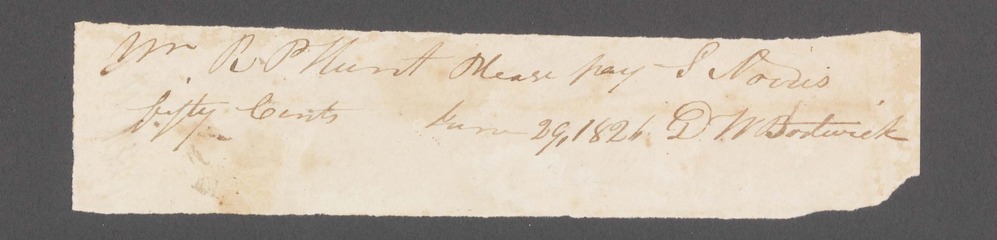 Mr R P Hunt Please pay S Norris
fifty Cents June 29, 1826 D W Bostwick